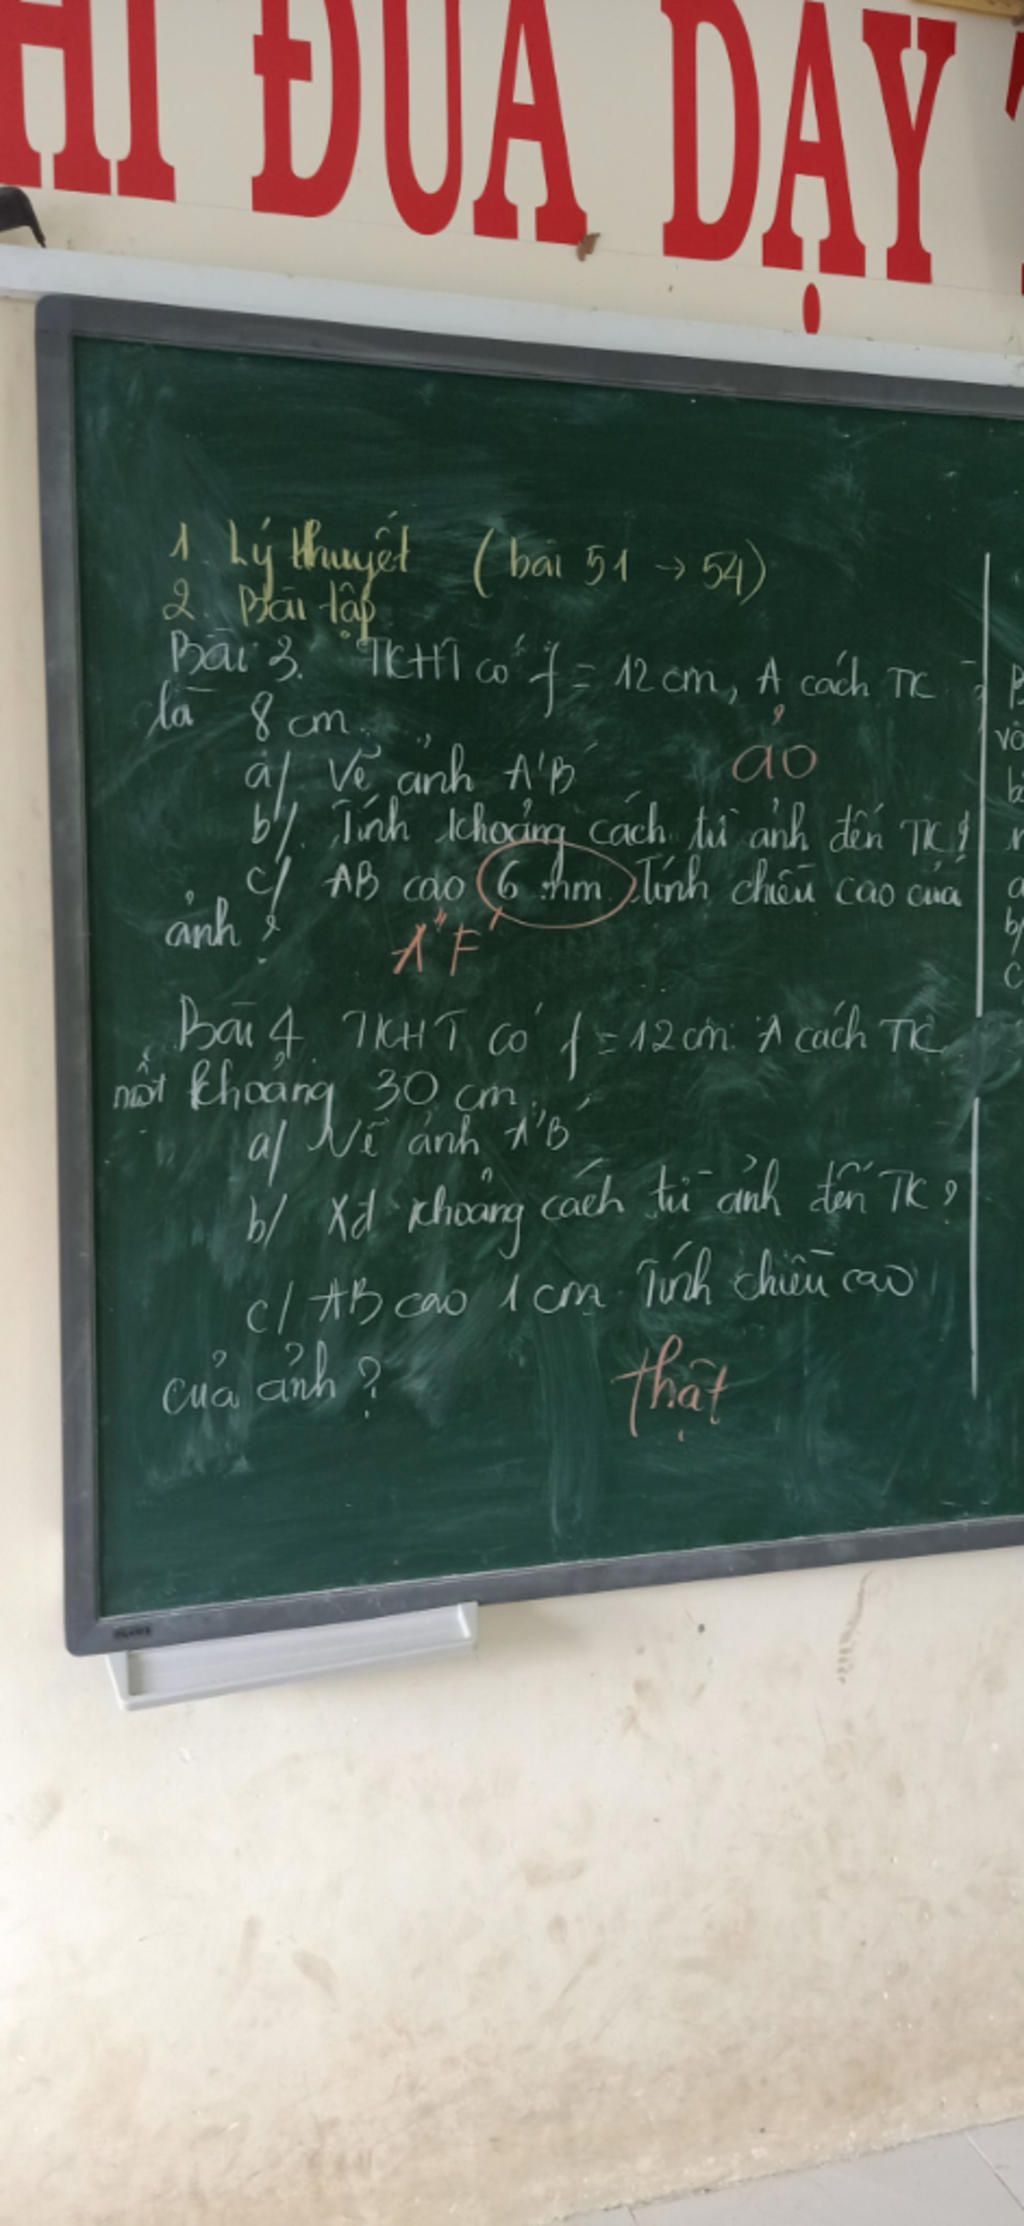 HI ĐUA DẠY
1. Lý thuyết (bài 51 → 54)
2. Bài tập
Bài 3. TKHT có f = 12 cm, A cách TK
là 8 cm.
a/ Vẽ ảnh A'B'
ảo
b/. Tính khoảng cách từ ảnh đến TK?
c/ AB cao 6 mm. Tính chiều cao của
ảnh?
Bài 4. TKHT có f = 12 cm. A cách TK
một khoảng 30 cm.
a/ Vẽ ảnh A'B'
b/ Xđ khoảng cách từ ảnh đến TK?
c/ AB cao 1 cm. Tính chiều cao
của ảnh?
thật